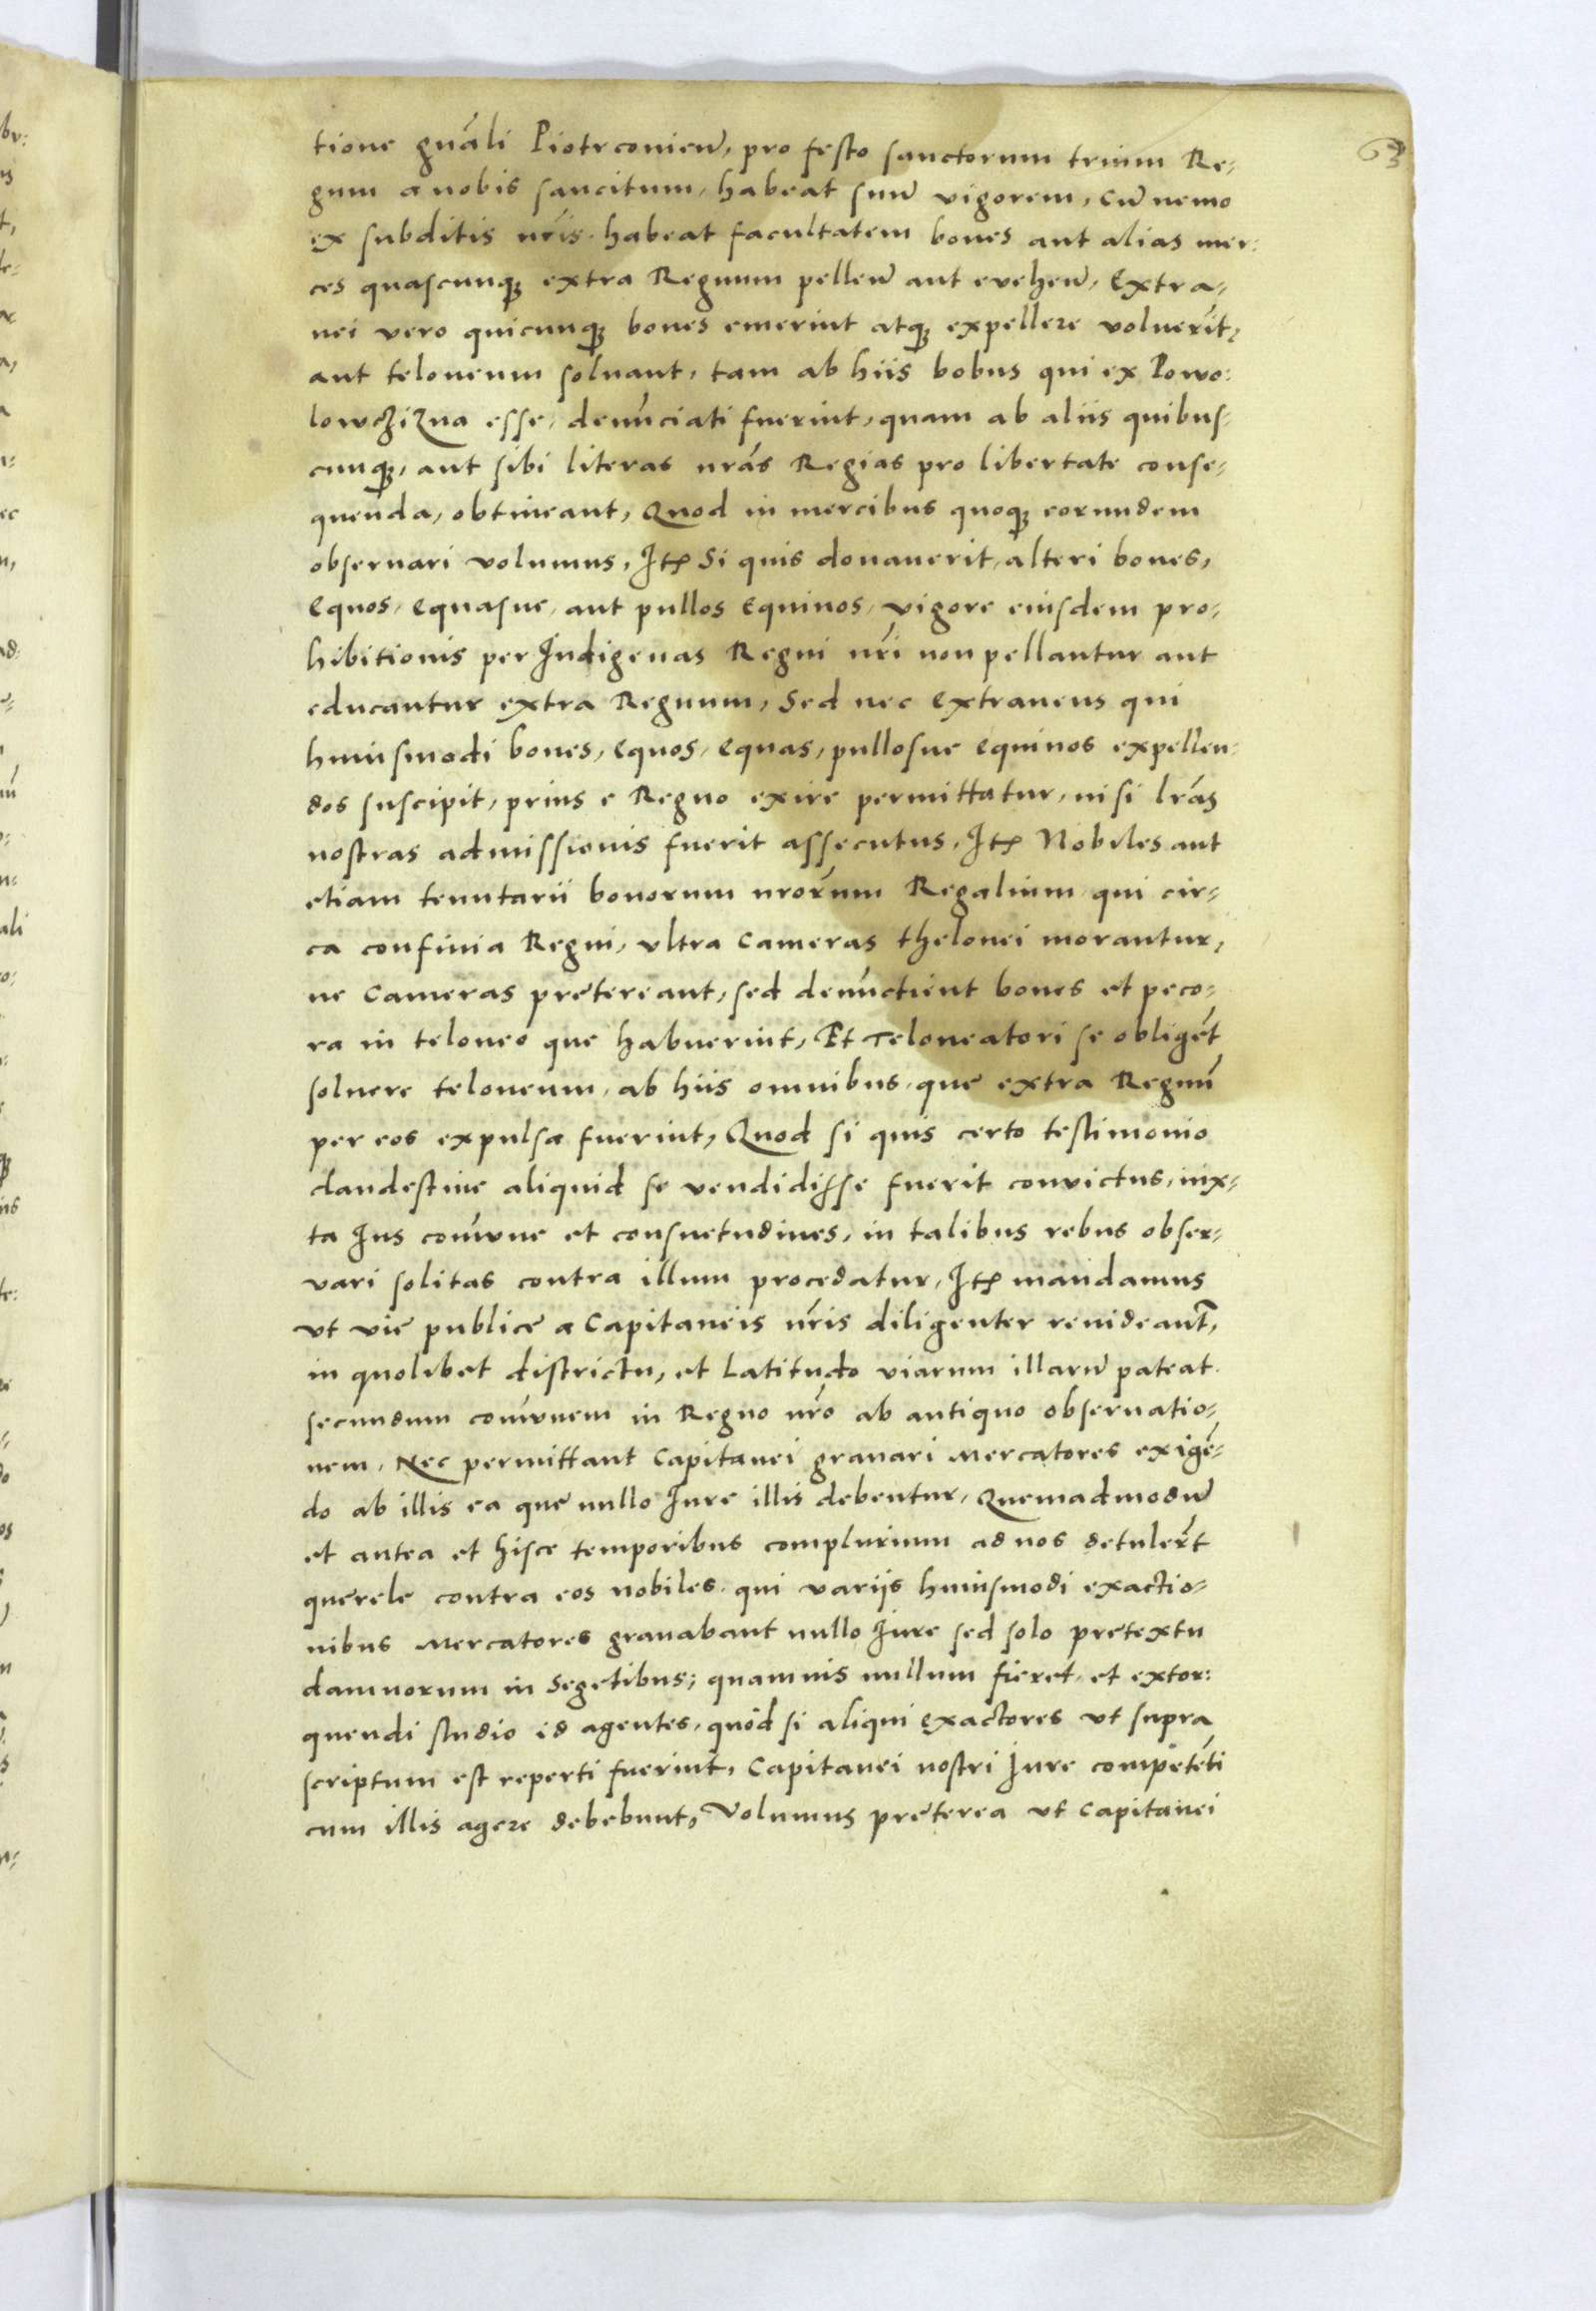 63
tione gnãli Piotrconieñ, pro festo sanctorum trium Re-
gum a nobis sancitum, habeat suũ vigorem, cũ nemo
ex subditis nr̃is habeat facultatem boues aut alias mer:
ces quascunqꝫ extra Regnum pelleñ aut eveheñ, Extra-
nei vero quicunqꝫ boues emerint atqꝫ expellere voluerĩt,
aut teloneum soluant, tam ab hiis bobus qui ex Powo:
lowcziZna esse, denũciati fuerint, quam ab aliis quibus-
cunqꝫ, aut sibi literas nrãs Regias pro libertate conse-
quenda, obtineant, Quod in mercibus quoqꝫ eorundem
obseruari volumus, Itꝫ Si quis donauerit alteri boues,
Equos, Equasue, aut pullos Equinos, vigore eiusdem pro-
hibitionis per Indigenas Regni nr̃i non pellantur aut
educantur extra Regnum, Sed nec Extraneus qui
huiusmodi boues, Equos, Equas, pullosue Equinos expellen-
dos suscipit, prius e Regno exire permittatur, nisi lrãs
nostras admissionis fuerit assecutus, Itꝫ Nobiles aut
etiam tenutarii bonorum nrõrum Regalium qui cir-
ca confinia Regni, vltra Cameras thelonei morantur,
ne Cameras pretereant, sed denũctient boues et peco-
ra in teloneo que habuerint, Et Teloneatori se obligẽt
soluere teloneum, ab hiis omnibus, que extra Regnũ
per eos expulsa fuerint, Quod si quis certo testimonio
clandestine aliquid se vendidisse fuerit convictus, iux-
ta Ius com̃une et consuetudines, in talibus rebus obser-
vari solitas contra illum procedatur, Itꝫ mandamus
vt vie publice a Capitaneis nr̃is diligenter reuideant̃,
in quolibet districtu, et Latitudo viarum illarũ pateat
secundum com̃unem in Regno nrõ ab antiquo obseruatio-
nem, Nec permittant Capitanei grauari Mercatores exigẽ-
do ab illis ea que nullo Iure illis debentur, Quemadmodũ
et antea et hisce temporibus complurium ad nos detulert̃
querele contra eos nobiles qui variis huiusmodi exactio-
nibus Mercatores grauabant nullo Iure sed solo pretextu
damnorum in Segetibus; quamuis nullum fieret, et extor:
quendi studio id agentes, quod si aliqui Exactores vt supra
scriptum est reperti fuerint, Capitanei nostri Iure competẽti
cum illis agere debebunt, Volumus preterea vt Capitanei